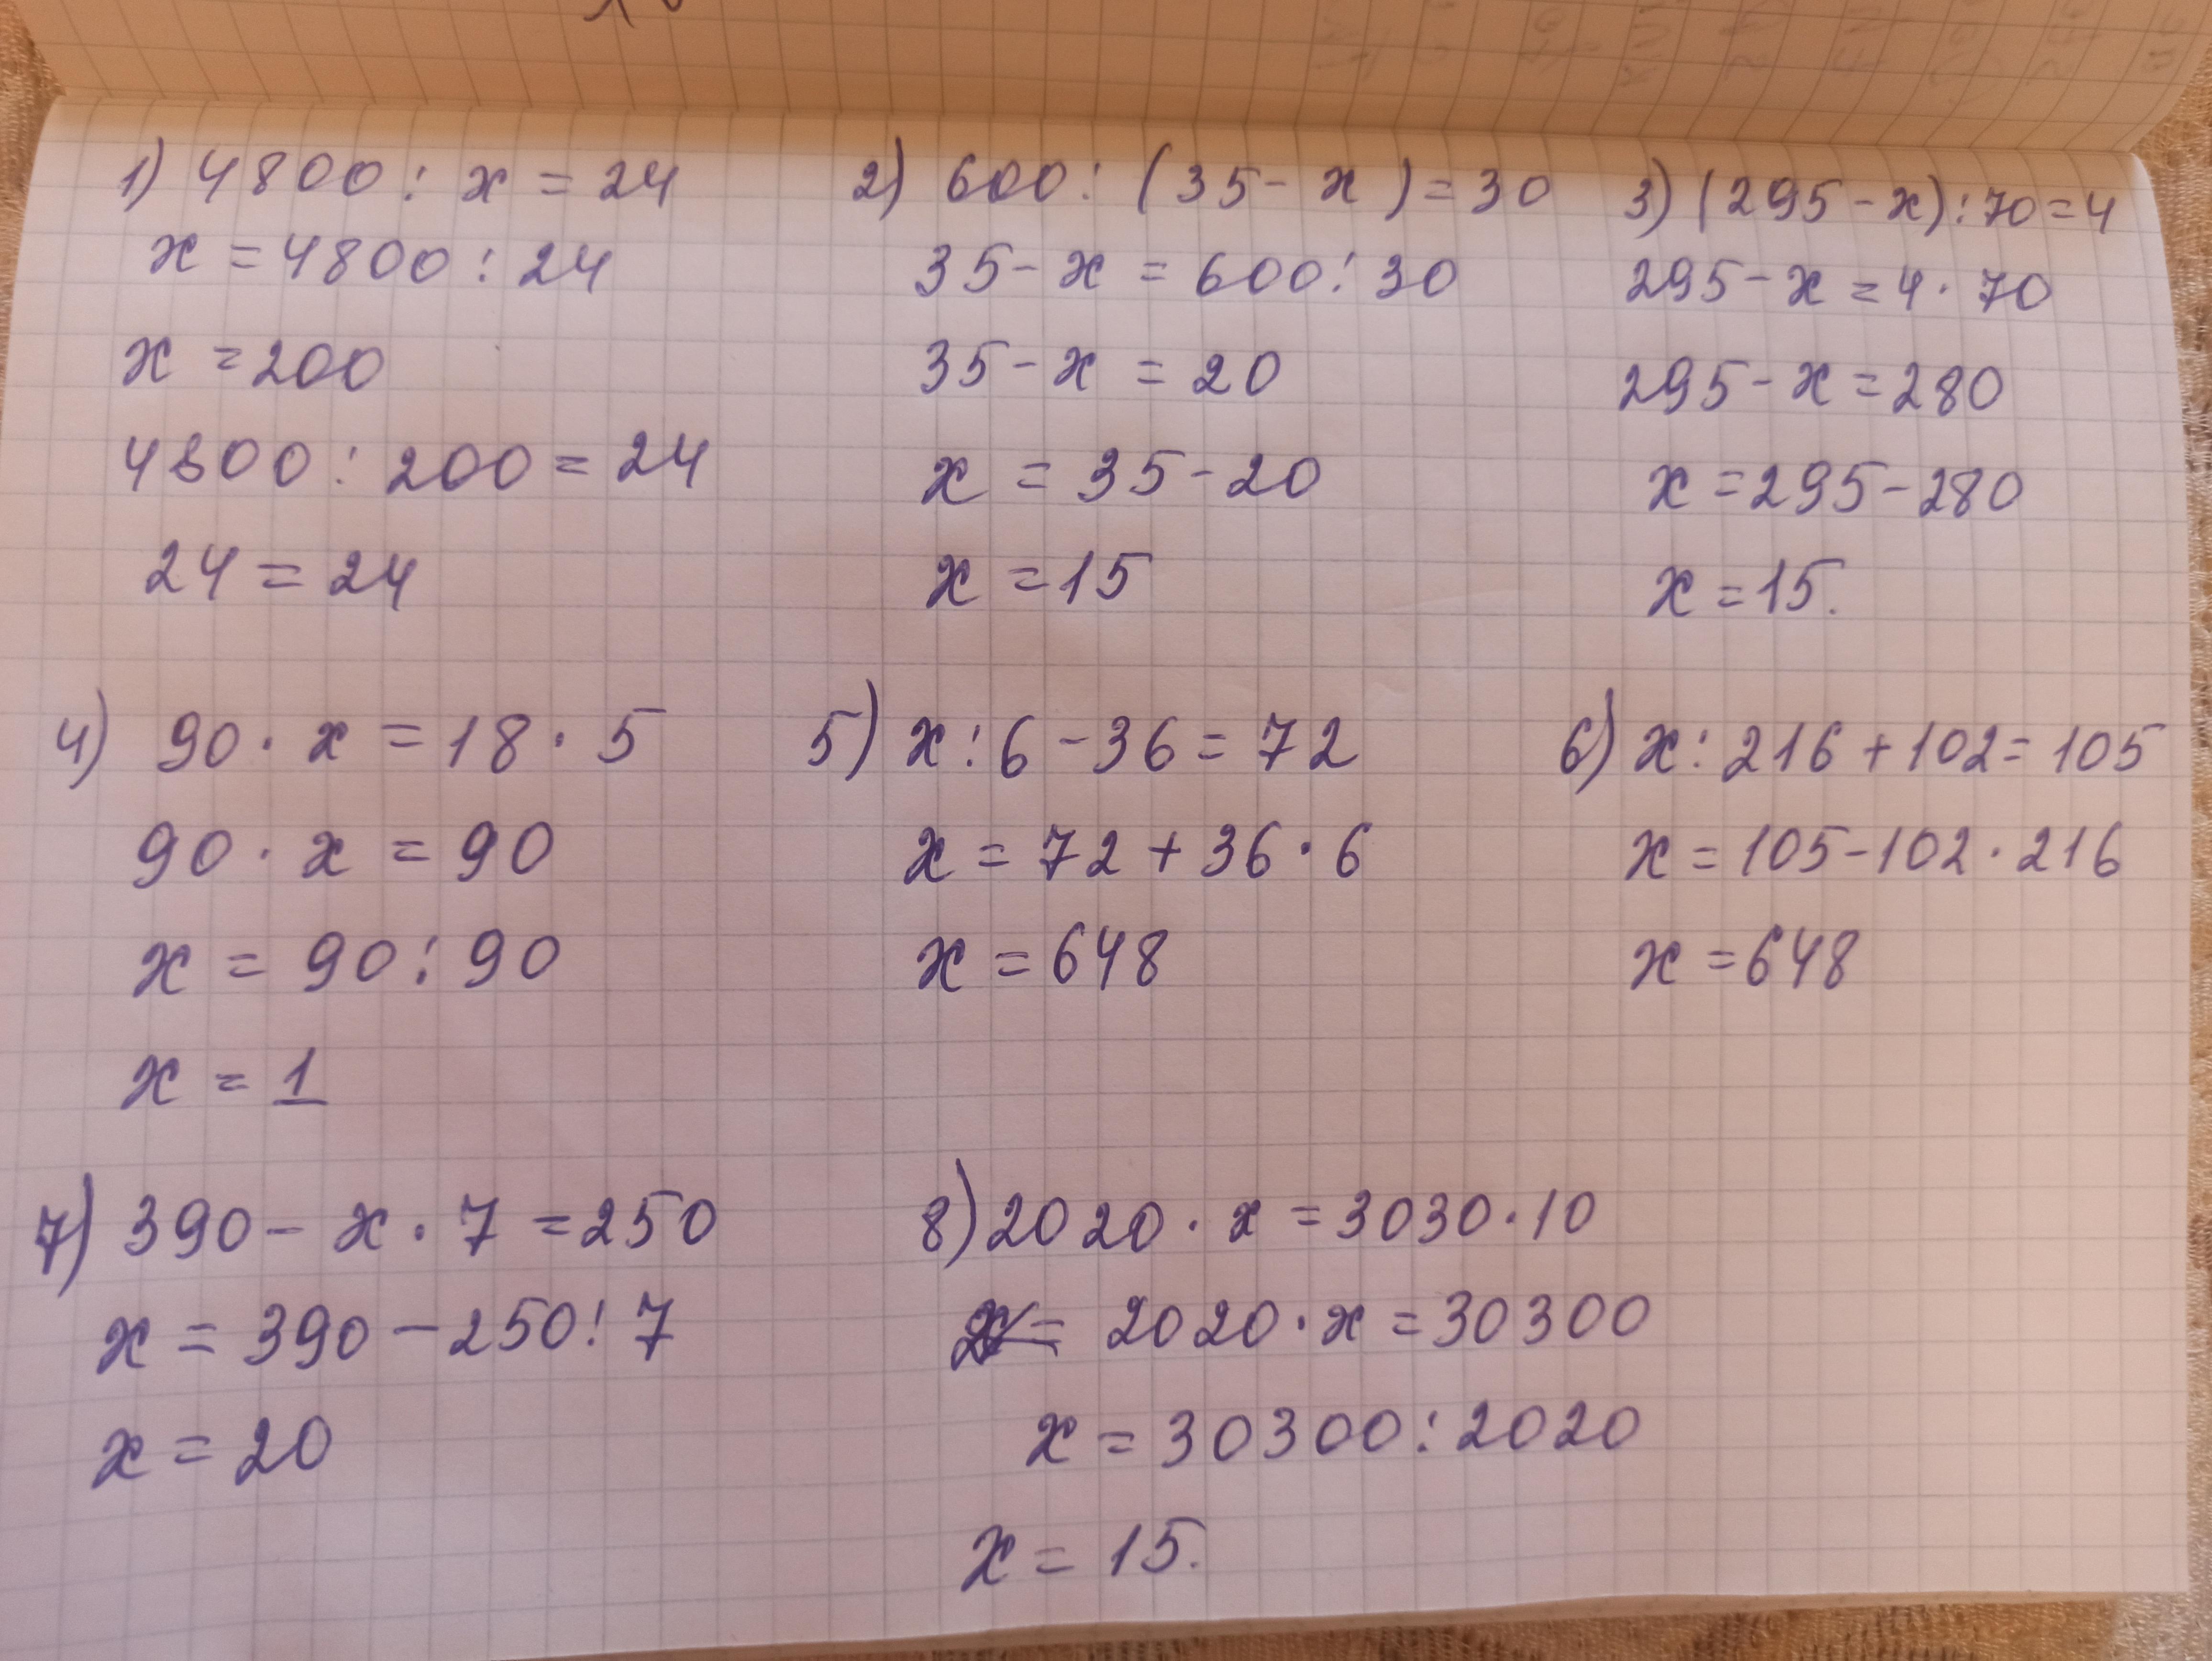 1) 4800 : x = 24
x = 4800 : 24
x = 200
4800 : 200 = 24
24 = 24
2) 600 : (35 - x) = 30
35 - x = 600 : 30
35 - x = 20
x = 35 - 20
x = 15
3) (295 - x) : 70 = 4
295 - x = 4 · 70
295 - x = 280
x = 295 - 280
x = 15.
4) 90 · x = 18 · 5
90 · x = 90
x = 90 : 90
x = 1
5) x : 6 - 36 = 72
x = 72 + 36 · 6
x = 648
6) x : 216 + 102 = 105
x = 105 - 102 · 216
x = 648
7) 390 - x · 7 = 250
x = 390 - 250 : 7
x = 20
8) 2020 · x = 3030 · 10
2020 · x = 30300
x = 30300 : 2020
x = 15.